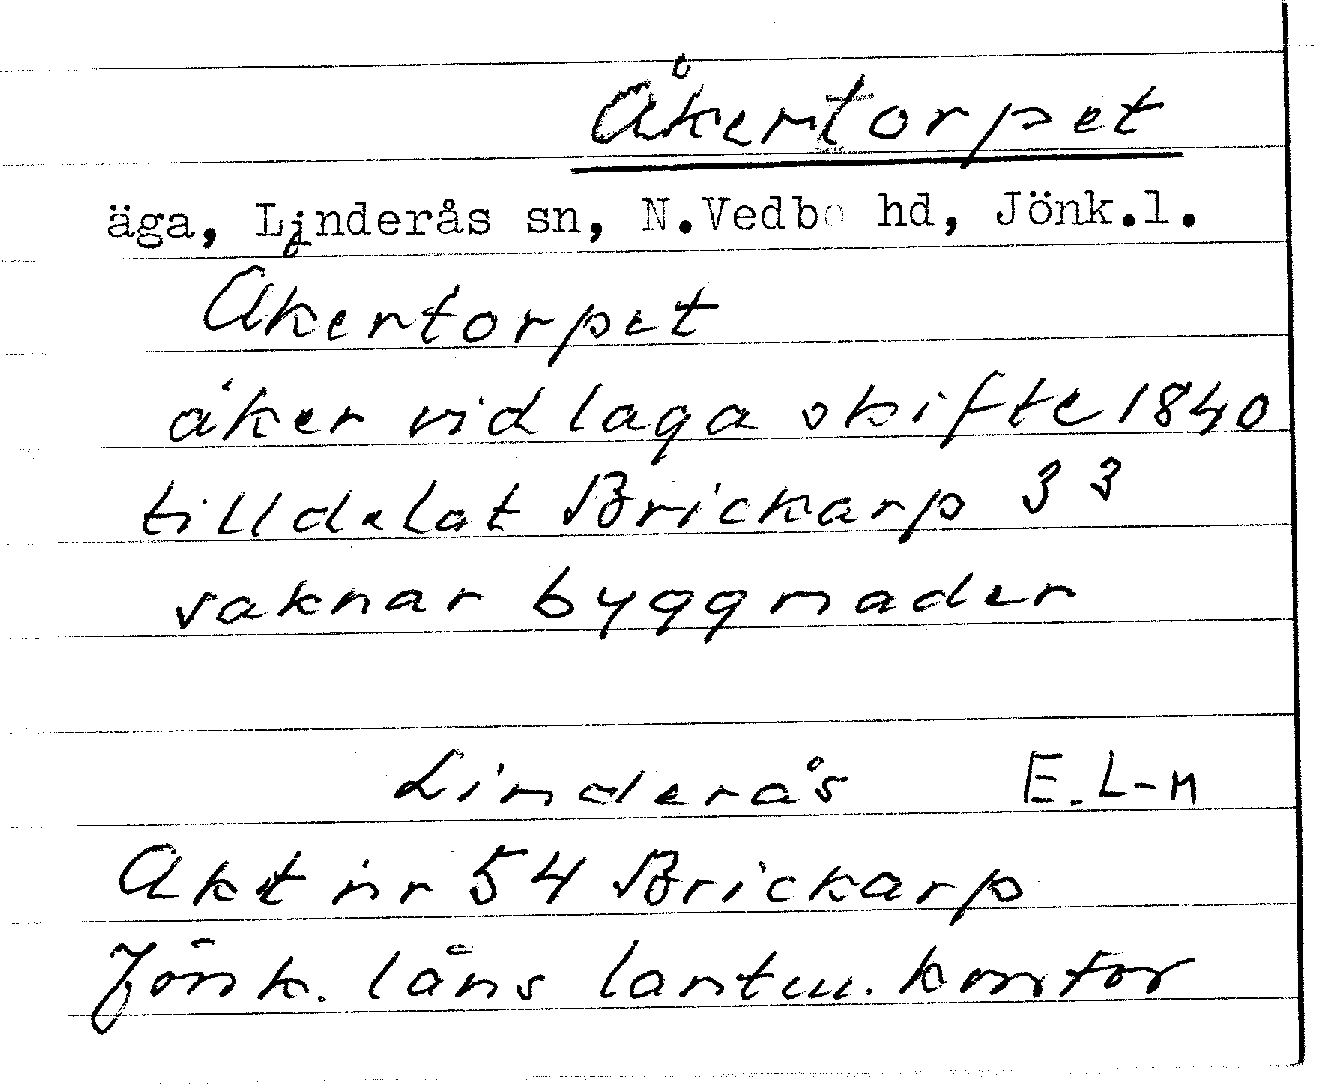 Åkertorpet
äga, Linderås sn, N.Vedbo hd, Jönk.l.
Åkertorpet
åker vid laga skifte 1840
tilldelat Brickarp 3³
saknar byggnader
Linderås E.L-n
Akt nr 54 Brickarp
Jönk. läns lantm. kontor